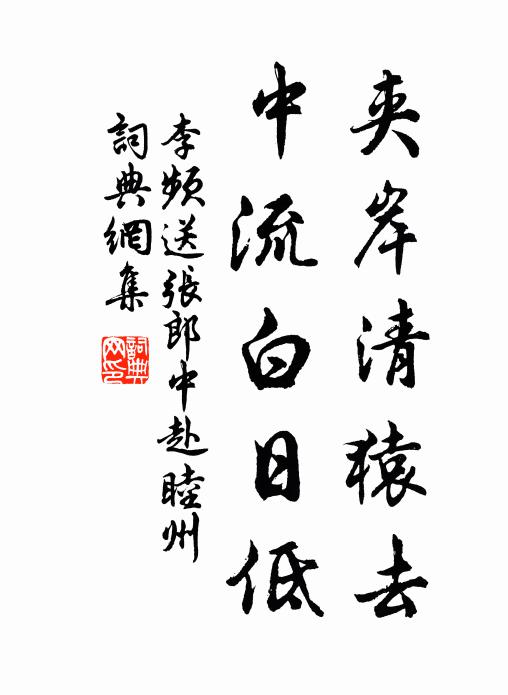 夹岸清猿去
中流白日低
李频送張郎中赴睦州
詞典網集
詞典
网印